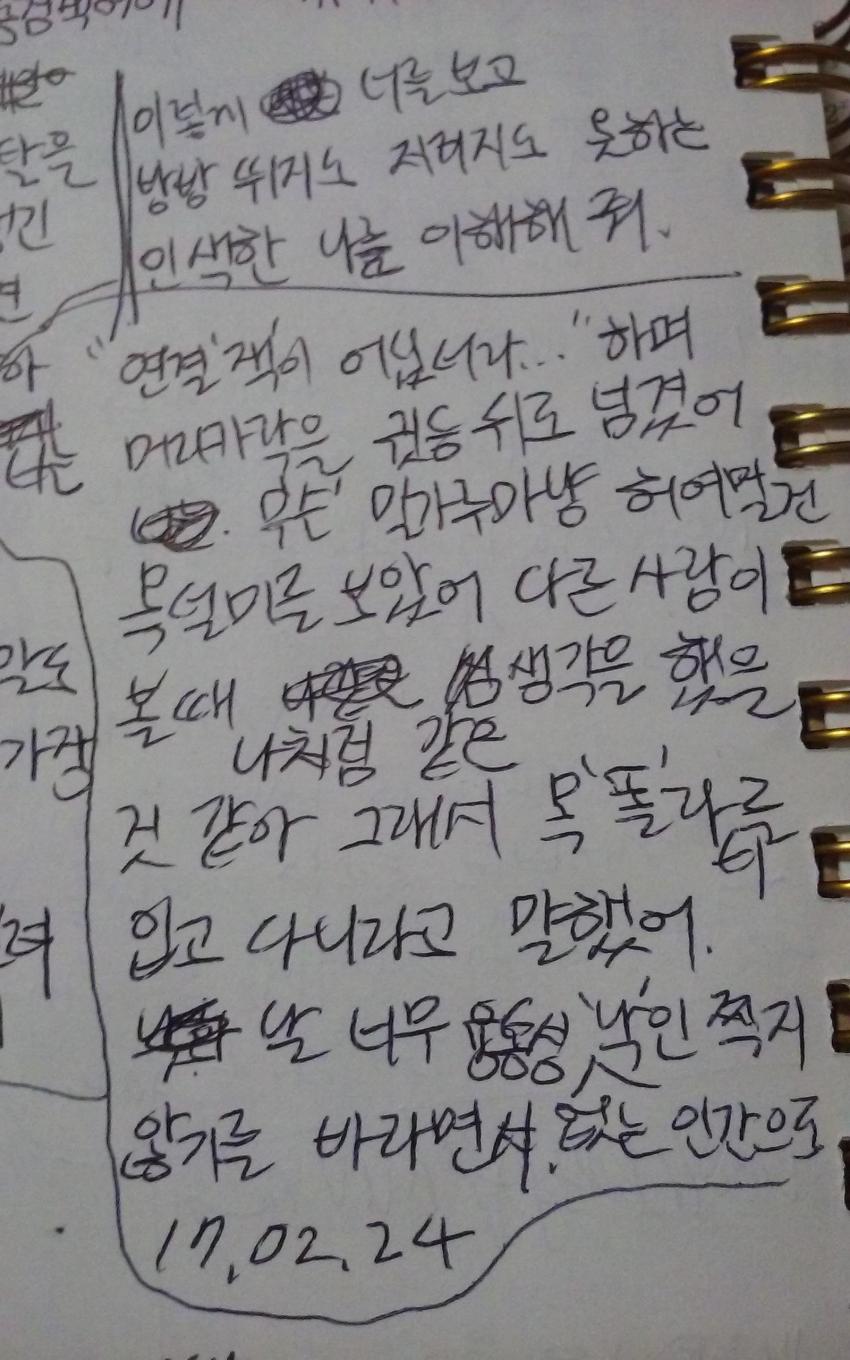 이렇게 너를 보고
방방 뛰지도 저러지도 못하는
인색한 나를 이해해 줘.
"연결'잭'이 어딨더라..." 하며
머리카락을 귓등 뒤로 넘겼어
무슨 밀가루마냥 허여멀건
목덜미를 보았어 다른 사람이
볼 때 생각을 했을
나처럼 같은
것 같아 그래서 목'폴'라를
입고 다니라고 말했어.
날 너무 융통성 '낫'인 찍지
없는 인간으로
않기를 바라면서.
17.02.24
탈을
말도
가장
려